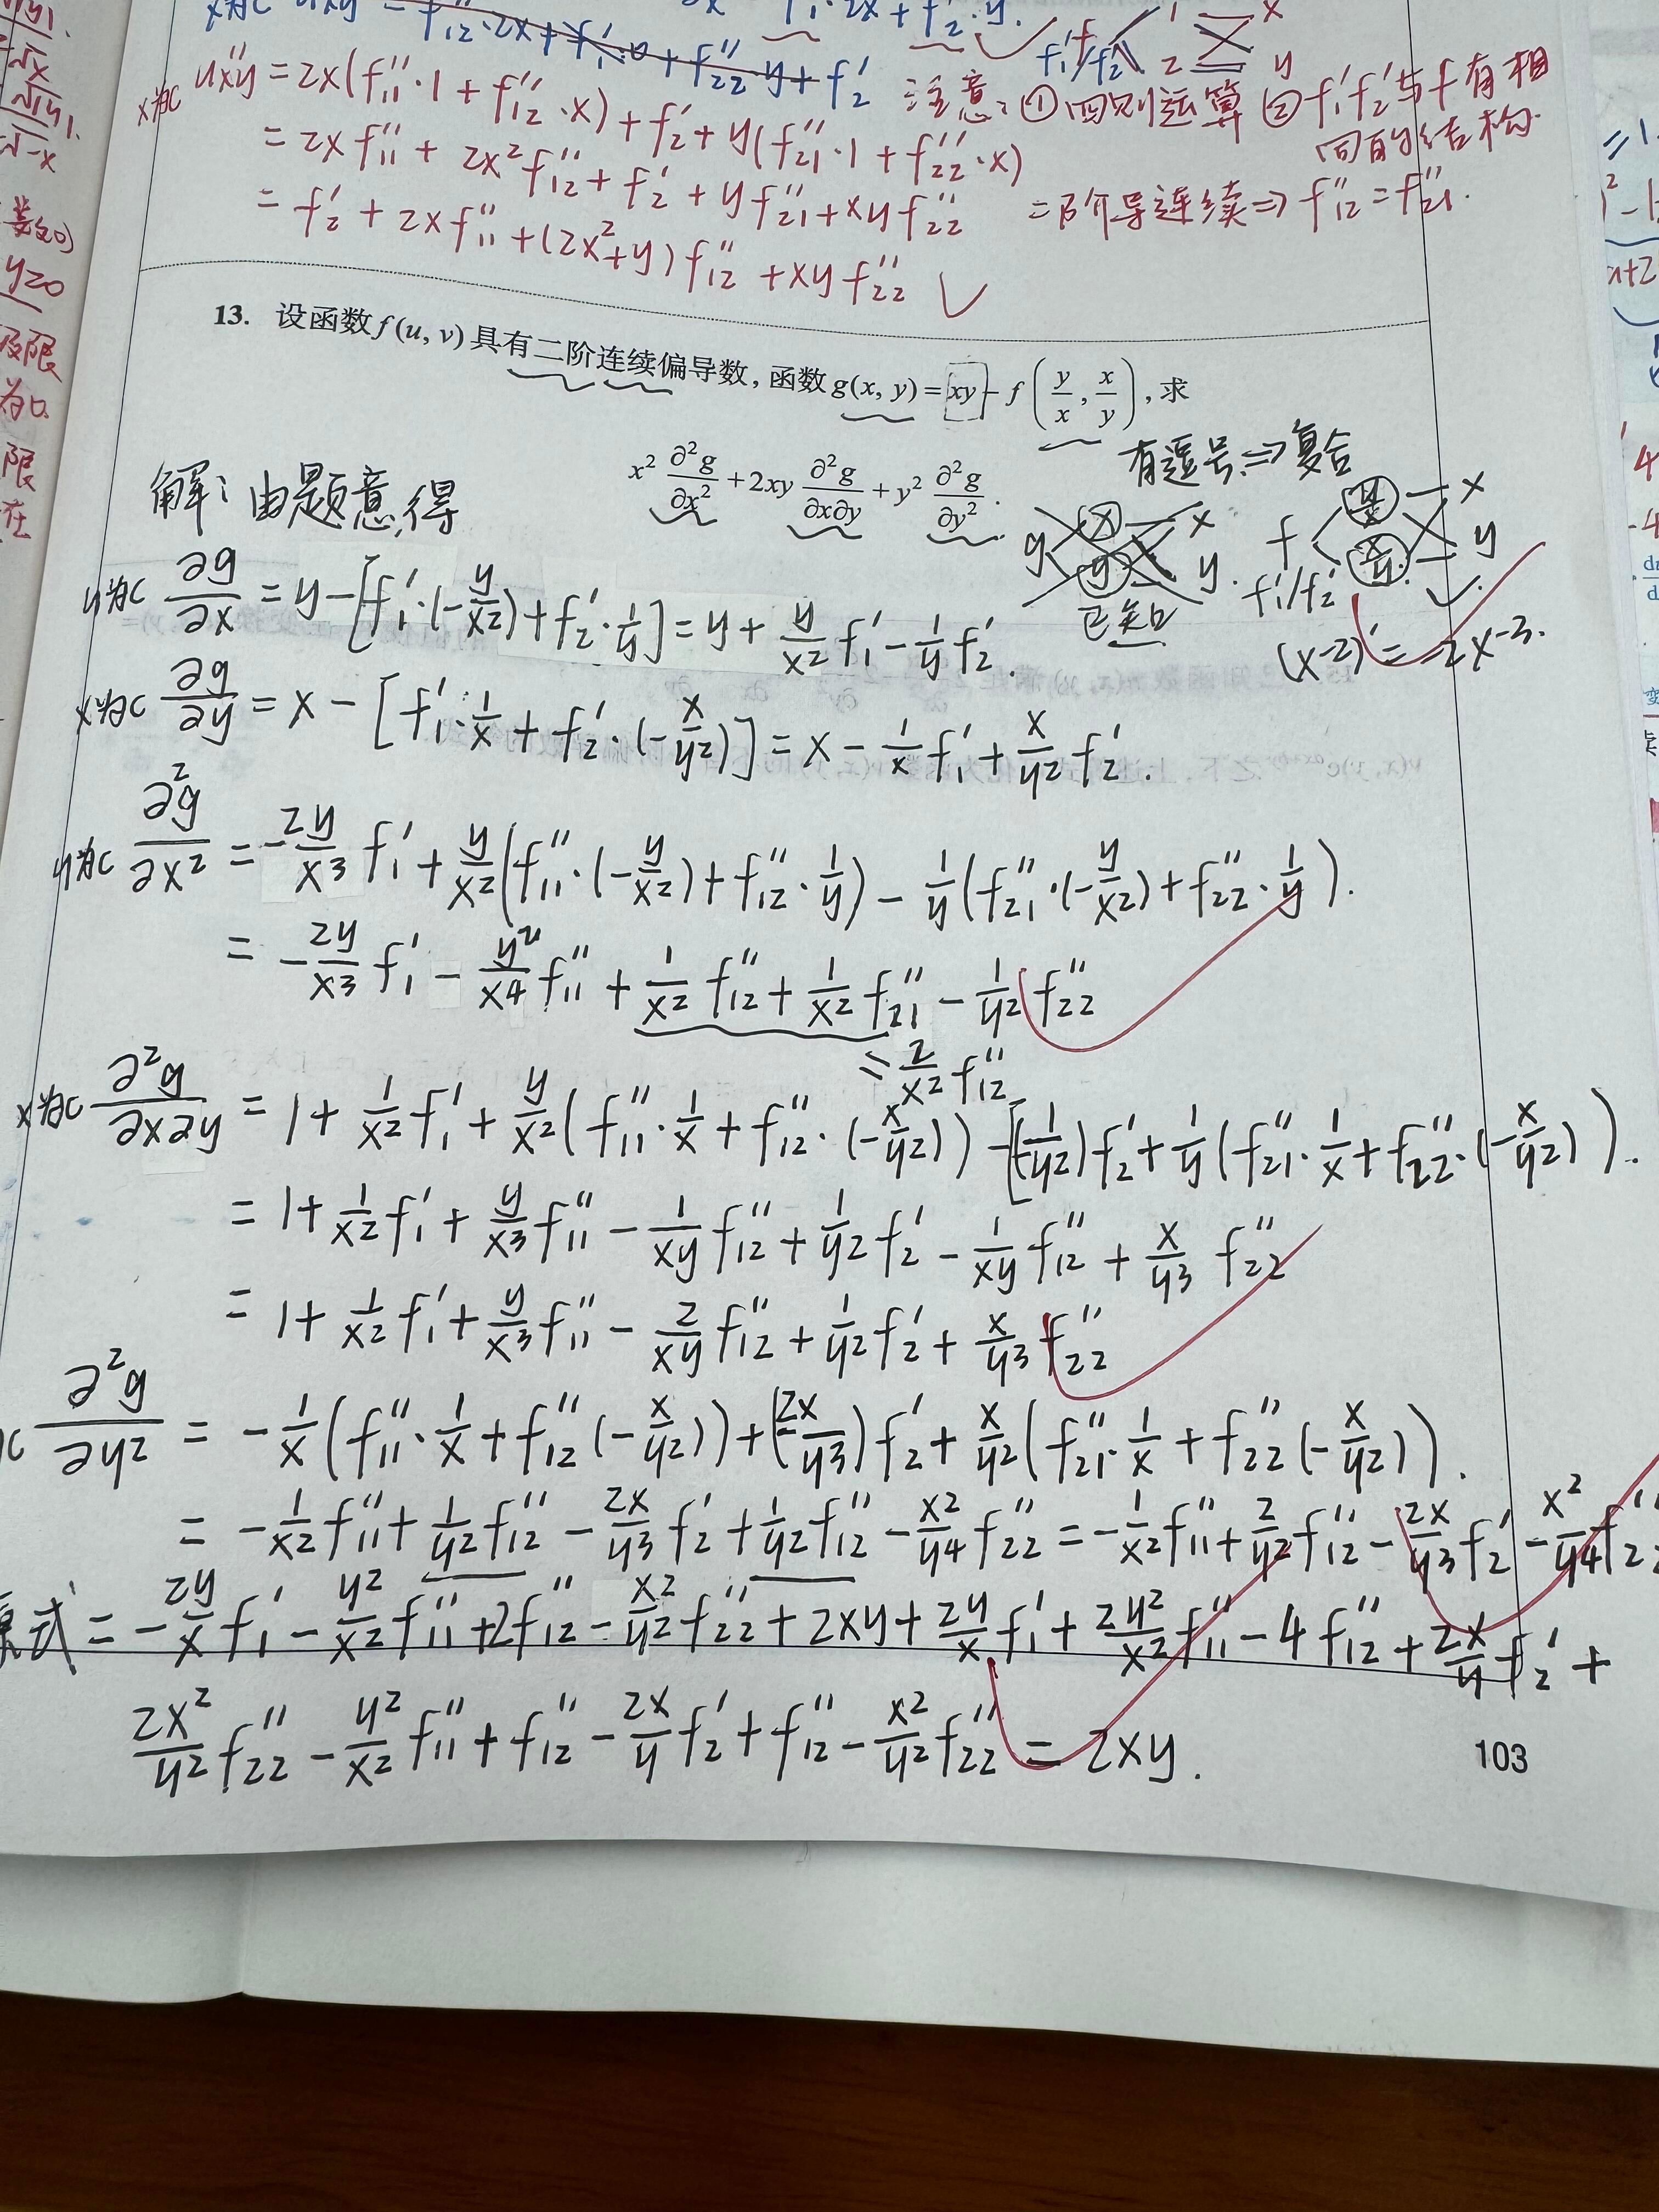 x为c u''xy = f''12·2x + f'1·0 + f''22·y + f'2
f'1·2x + f'2·y.
x为c u''xy = 2x(f''11·1 + f''12·x) + f'2 + y(f''21·1 + f''22·x)
注意: ①四则运算 ②f'1 f'2与f有相同的结构
= 2x f''11 + 2x² f''12 + f'2 + y f''21 + xy f''22
二阶导连续⇒ f''12 = f''21.
= f'2 + 2x f''11 + (2x²+y) f''12 + xy f''22
13. 设函数 f(u, v) 具有二阶连续偏导数, 函数 g(x, y) = xy - f(y/x, x/y), 求
x² ∂²g/∂x² + 2xy ∂²g/∂x∂y + y² ∂²g/∂y².
有逗号⇒复合
解: 由题意得
g x y x y. 已知
f y/x x/y x y f'1/f'2
(x⁻²)' = -2x⁻³.
y为c ∂g/∂x = y - [f'1·(-y/x²) + f'2·1/y] = y + y/x² f'1 - 1/y f'2.
x为c ∂g/∂y = x - [f'1·1/x + f'2·(-x/y²)] = x - 1/x f'1 + x/y² f'2.
y为c ∂²g/∂x² = -2y/x³ f'1 + y/x²(f''11·(-y/x²) + f''12·1/y) - 1/y(f''21·(-y/x²) + f''22·1/y).
= -2y/x³ f'1 - y²/x⁴ f''11 + 1/x² f''12 + 1/x² f''21 - 1/y² f''22
= 2/x² f''12
x为c ∂²g/∂x∂y = 1 + 1/x² f'1 + y/x²(f''11·1/x + f''12·(-x/y²)) - [(-1/y²)f'2 + 1/y(f''21·1/x + f''22·(-x/y²)).
= 1 + 1/x² f'1 + y/x³ f''11 - 1/xy f''12 + 1/y² f'2 - 1/xy f''12 + x/y³ f''22
= 1 + 1/x² f'1 + y/x³ f''11 - 2/xy f''12 + 1/y² f'2 + x/y³ f''22
c ∂²g/∂y² = -1/x(f''11·1/x + f''12(-x/y²)) + (-2x/y³)f'2 + x/y²(f''21·1/x + f''22(-x/y²)).
= -1/x² f''11 + 1/y² f''12 - 2x/y³ f'2 + 1/y² f''12 - x²/y⁴ f''22 = -1/x² f''11 + 2/y² f''12 - 2x/y³ f'2 - x²/y⁴ f''22
原式 = -2y/x f'1 - y²/x² f''11 + 2f''12 - x²/y² f''22 + 2xy + 2y/x f'1 + 2y²/x² f''11 - 4f''12 + 2x/y f'2 +
2x²/y² f''22 - y²/x² f''11 + f''12 - 2x/y f'2 + f''12 - x²/y² f''22 = 2xy.
103